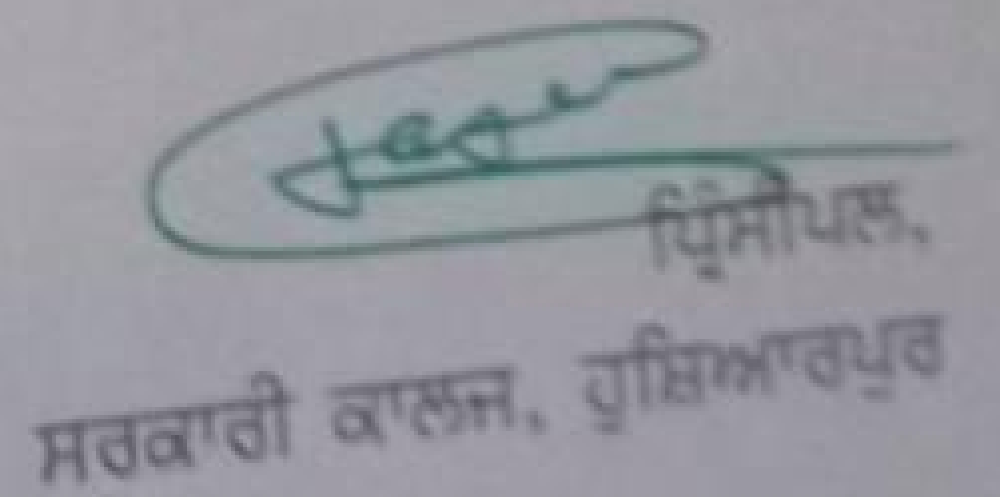 ਪ੍ਰਿੰਸੀਪਲ,
ਸਰਕਾਰੀ ਕਾਲਜ, ਹੁਸ਼ਿਆਰਪੁਰ